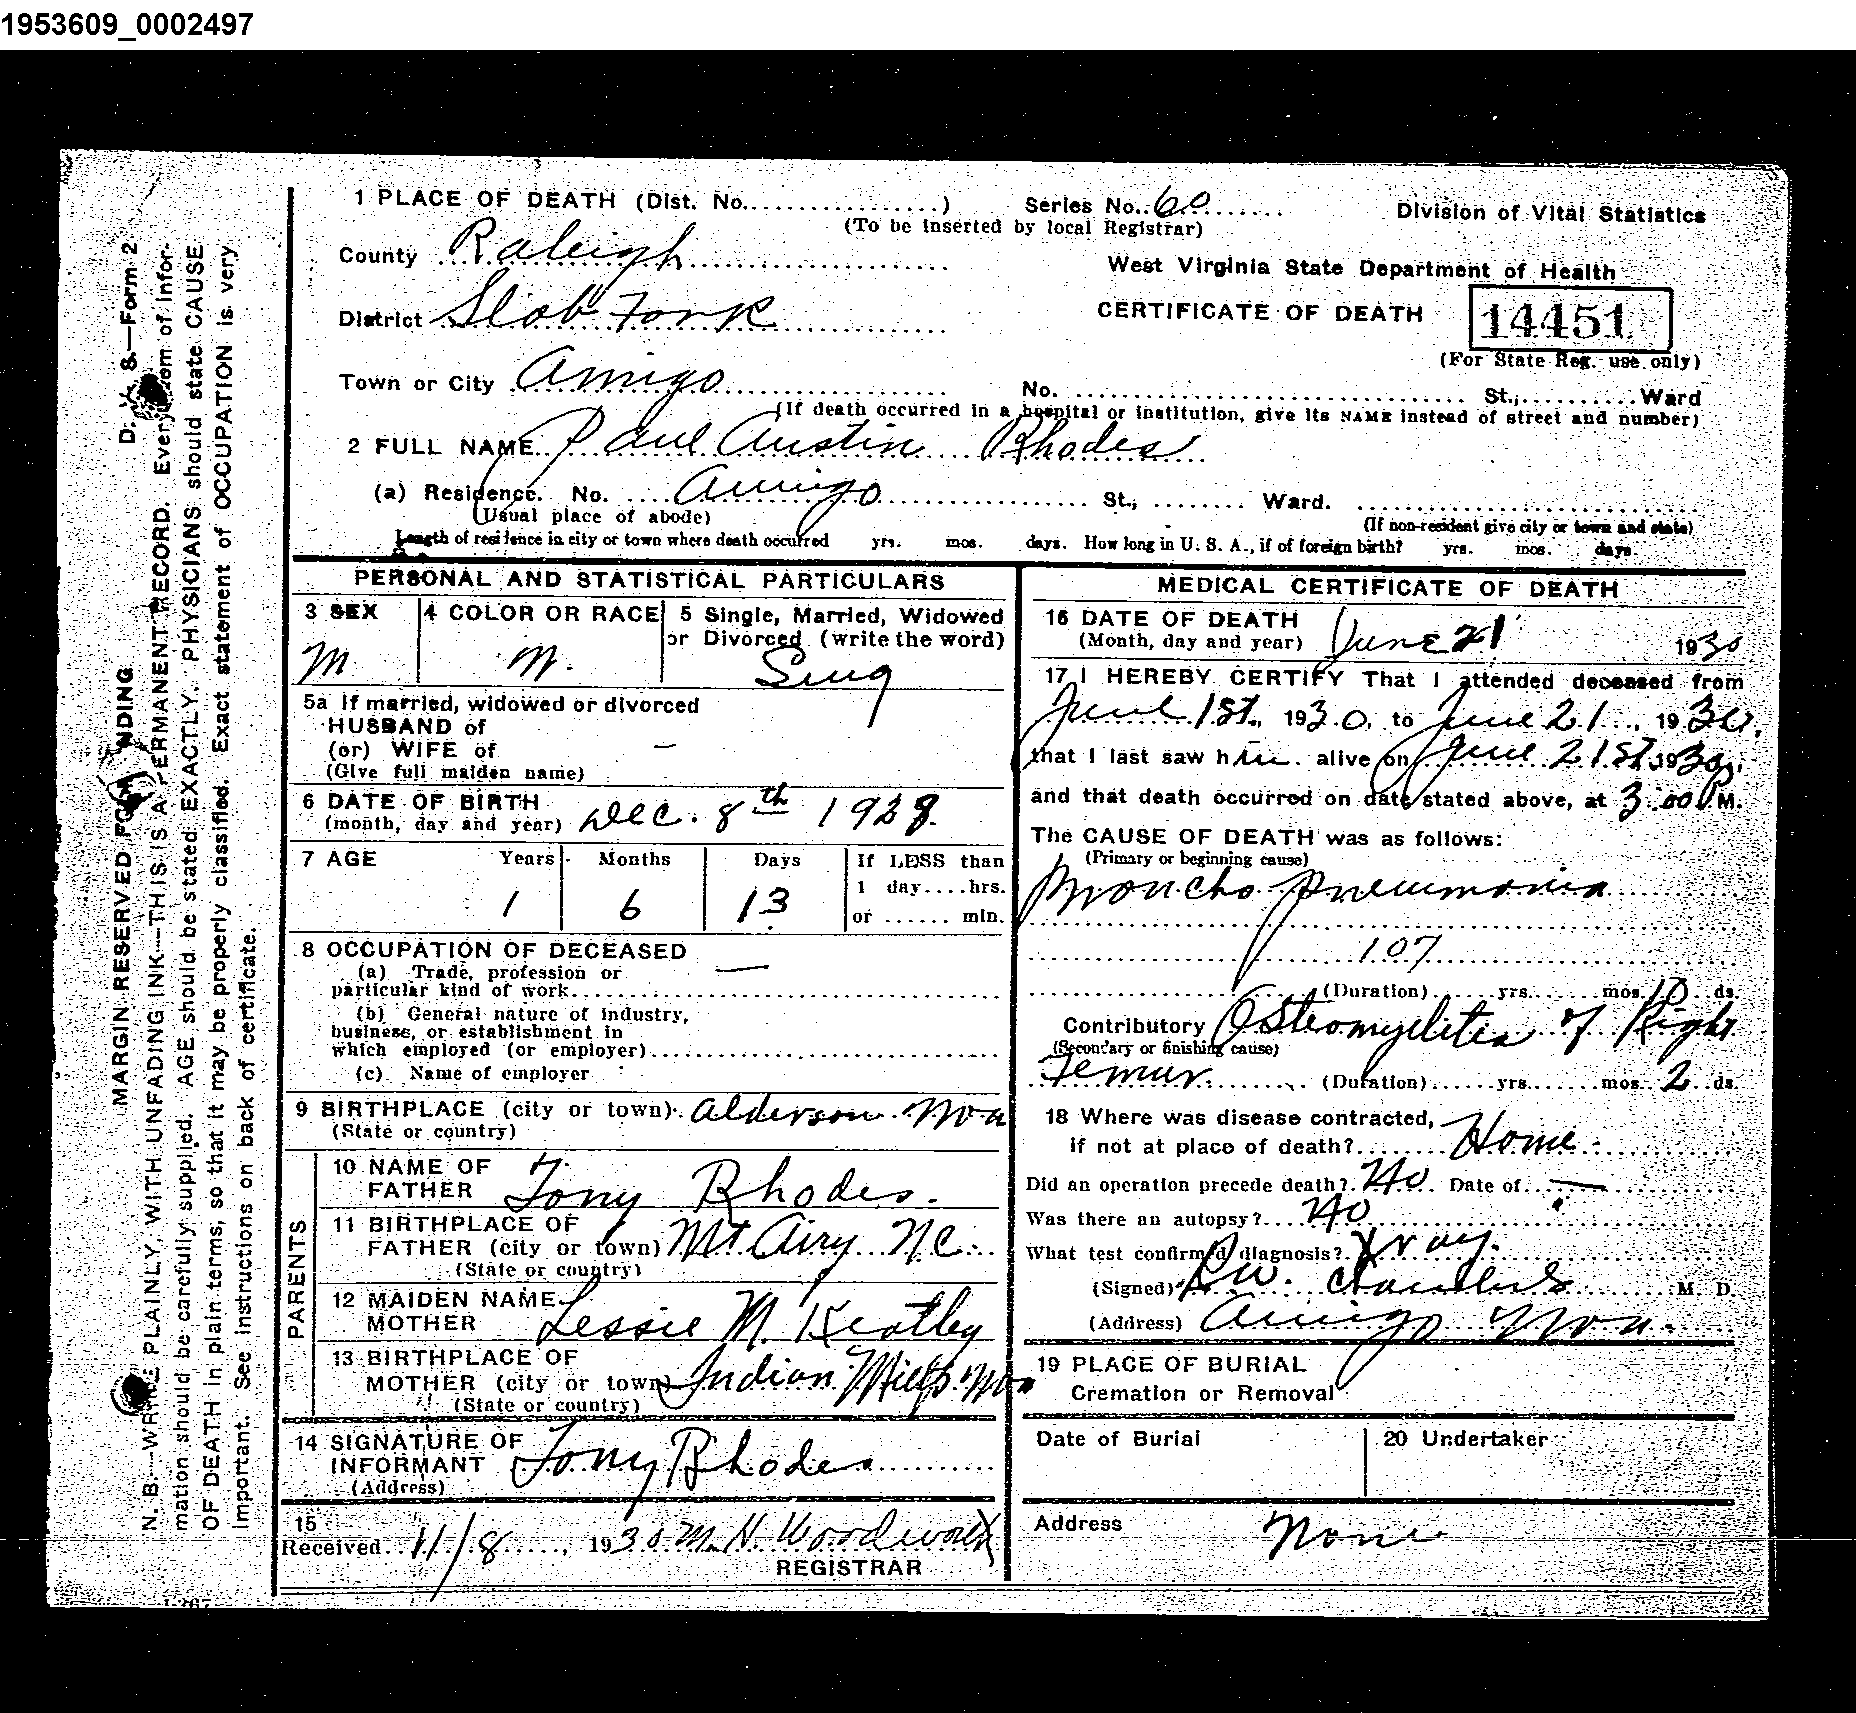 1953609_0002497
1 PLACE OF DEATH (Dist. No..................) Series No. 60
(To be inserted by local Registrar)
Division of Vital Statistics
County Raleigh
West Virginia State Department of Health
District Slab Fork
CERTIFICATE OF DEATH 14451
(For State Reg. use only)
Town or City Amigo No. St., Ward
(If death occurred in a hospital or institution, give its NAME instead of street and number)
2 FULL NAME Paul Austin Rhodes
(a) Residence. No. Amigo St., Ward.
(Usual place of abode) (If non-resident give city or town and state)
Length of residence in city or town where death occurred yrs. mos. days. How long in U. S. A., if of foreign birth? yrs. mos. days.
PERSONAL AND STATISTICAL PARTICULARS
3 SEX
M
4 COLOR OR RACE
W.
5 Single, Married, Widowed
or Divorced (write the word)
Sing
5a If married, widowed or divorced
HUSBAND of
(or) WIFE of —
(Give full maiden name)
6 DATE OF BIRTH
(month, day and year) Dec. 8th 1928.
7 AGE Years Months Days If LESS than
1 day....hrs.
or ...... min.
1 6 13
8 OCCUPATION OF DECEASED
(a) Trade, profession or —
particular kind of work
(b) General nature of industry,
business, or establishment in
which employed (or employer)
(c) Name of employer
9 BIRTHPLACE (city or town) Alderson Wva
(State or country)
PARENTS
10 NAME OF
FATHER Tony Rhodes.
11 BIRTHPLACE OF
FATHER (city or town) Mt Airy N.C.
(State or country)
12 MAIDEN NAME
MOTHER Lessie M. Keatley
13 BIRTHPLACE OF
MOTHER (city or town) Indian Mills Wva
(State or country)
14 SIGNATURE OF
INFORMANT Tony Rhodes
(Address)
15
Received 11/8, 1930 M. H. Woodwall
REGISTRAR
MEDICAL CERTIFICATE OF DEATH
16 DATE OF DEATH
(Month, day and year) June 21 1930
17 I HEREBY CERTIFY That I attended deceased from
June 1st, 1930, to June 21, 1930,
that I last saw him alive on June 21st 1930,
and that death occurred on date stated above, at 3:00 P.M.
The CAUSE OF DEATH was as follows:
(Primary or beginning cause)
Broncho pneumonia
107
(Duration) yrs. mos. 10 ds.
Contributory Osteomyelites of Right
(Secondary or finishing cause)
Femur. (Duration) yrs. mos. 2 ds.
18 Where was disease contracted,
if not at place of death? Home.
Did an operation precede death? No Date of —
Was there an autopsy? No
What test confirmed diagnosis? Xray.
(Signed) M. D.
(Address) Amigo Wva.
19 PLACE OF BURIAL
Cremation or Removal
Date of Burial 20 Undertaker
Address None
D. V. S.—Form 2
MARGIN RESERVED FOR BINDING
N. B.—WRITE PLAINLY, WITH UNFADING INK—THIS IS A PERMANENT RECORD. Every item of infor-
mation should be carefully supplied. AGE should be stated EXACTLY. PHYSICIANS should state CAUSE
OF DEATH in plain terms, so that it may be properly classified. Exact statement of OCCUPATION is very
important. See instructions on back of certificate.